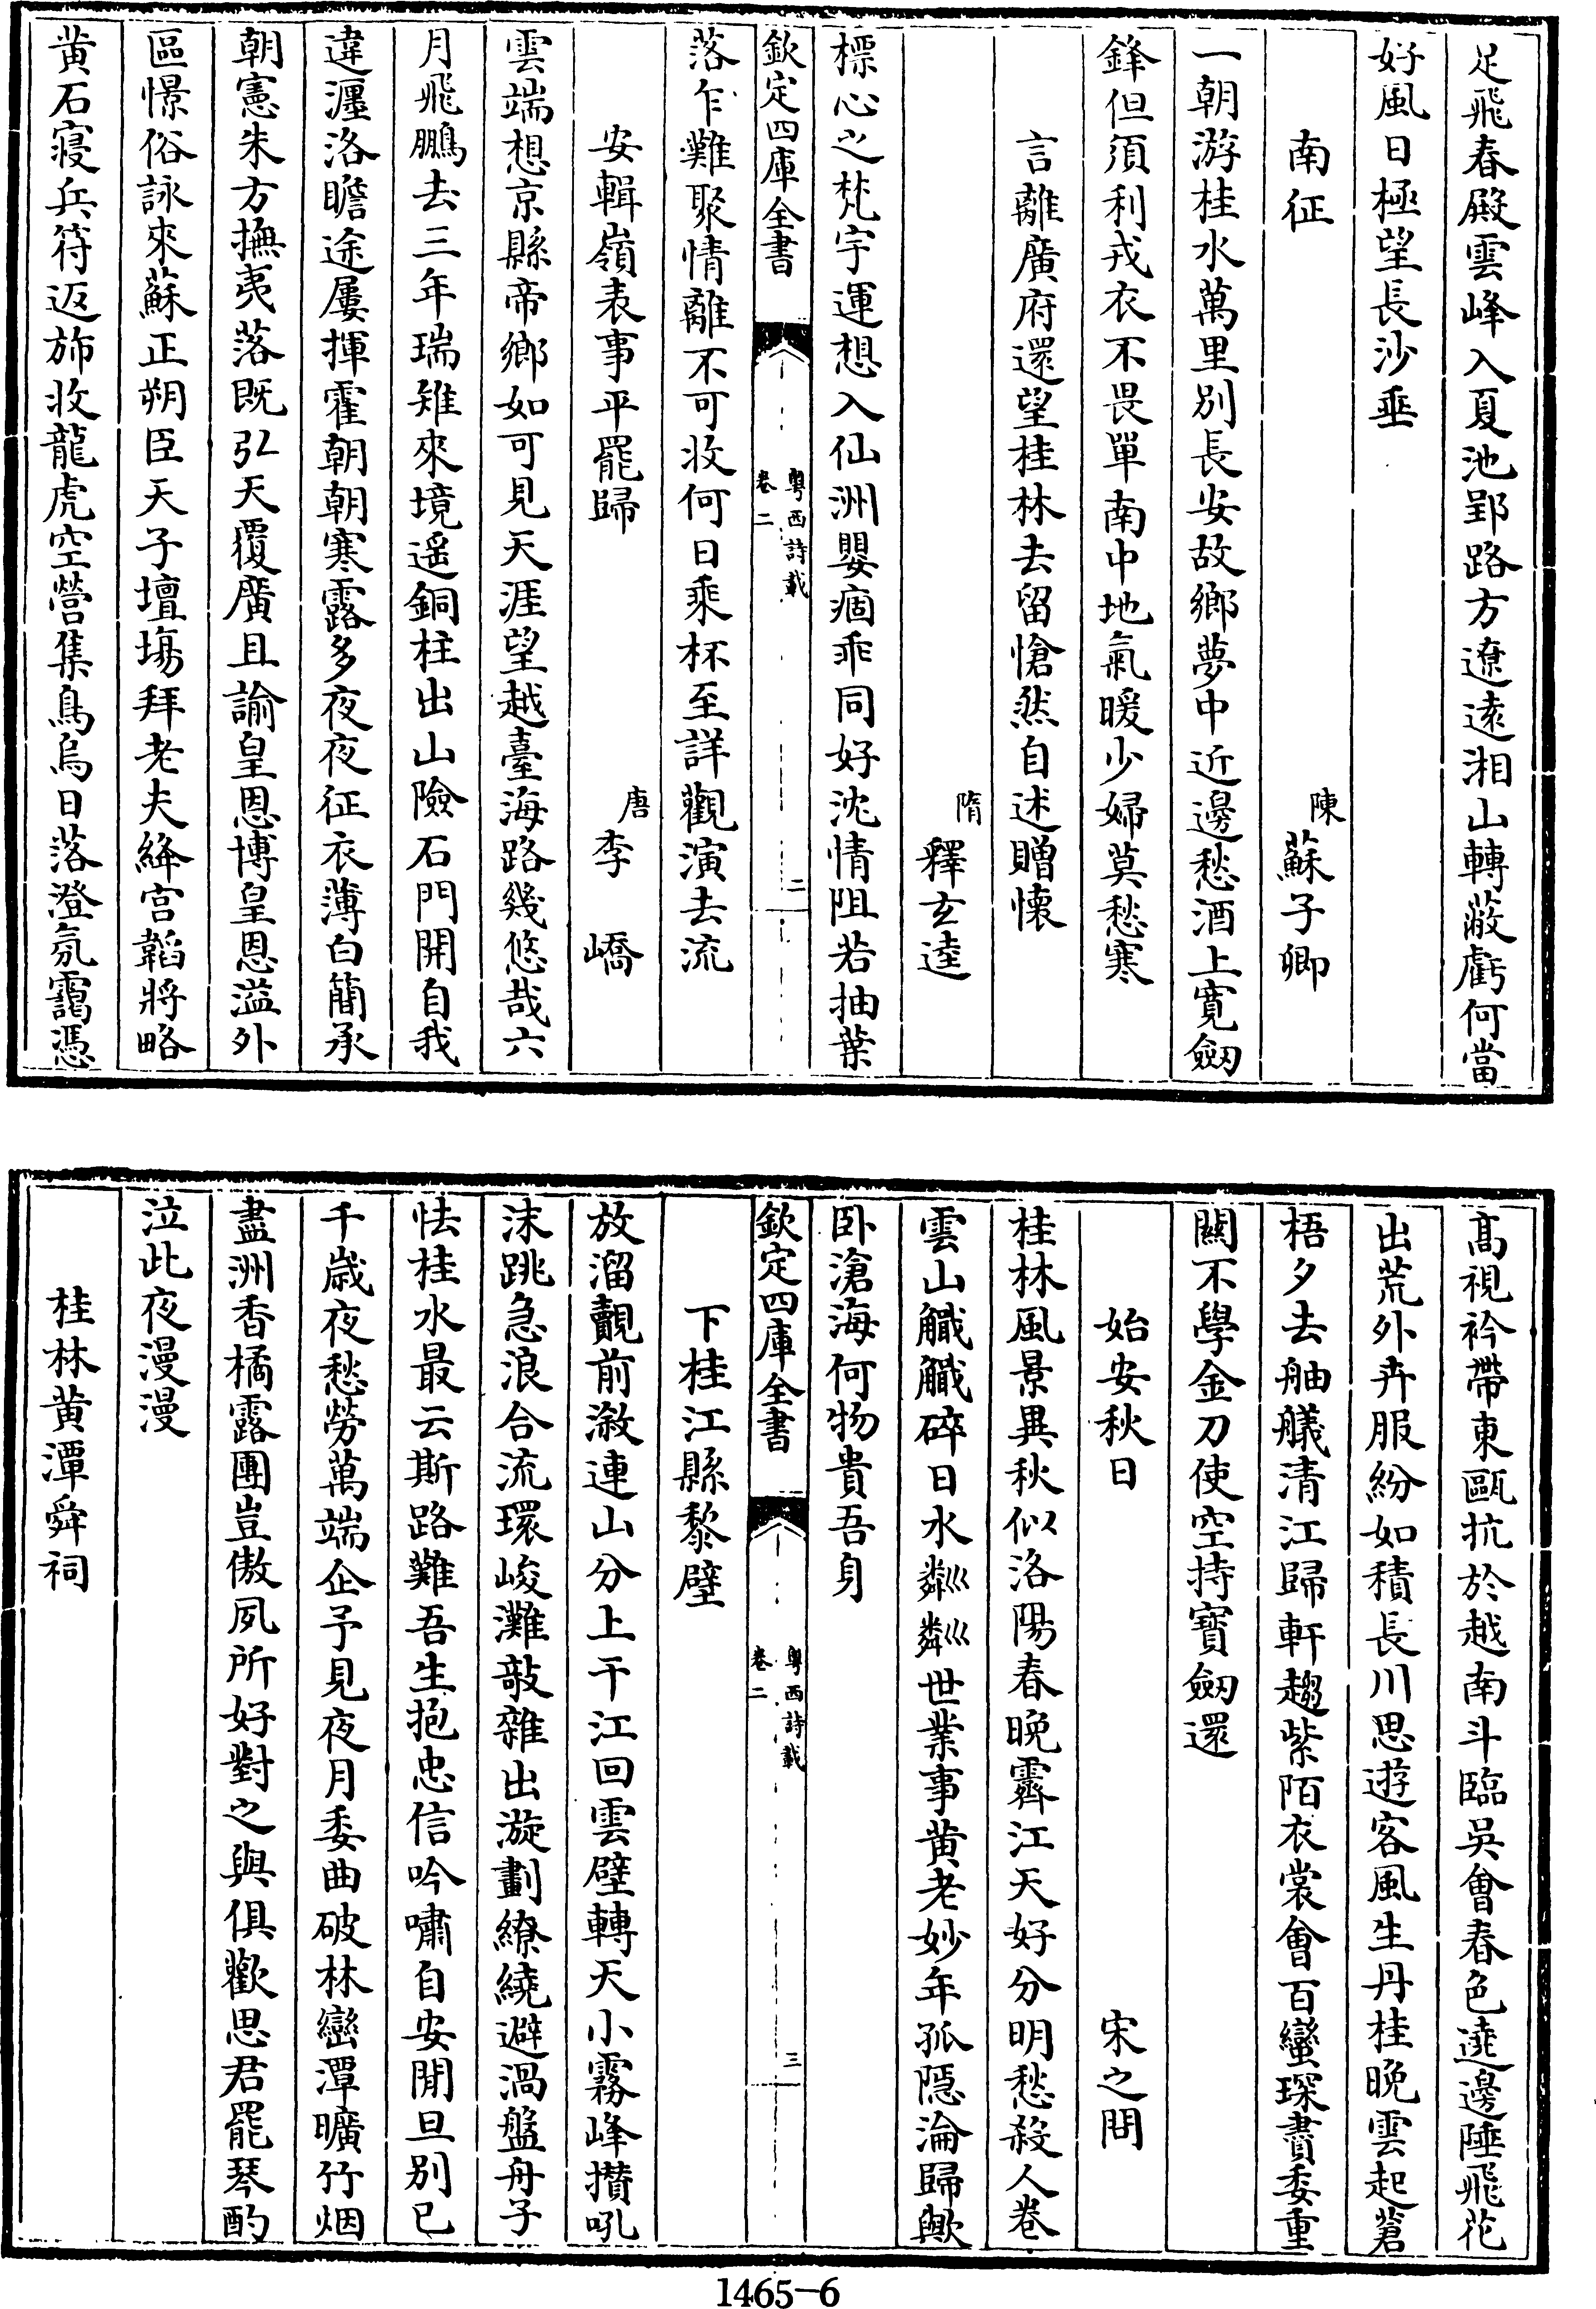 足飛春殿雲峰入夏池郢路方遼遠湘山轉蔽虧何當
好風日極望長沙垂
南征　陳蘇子卿
一朝游桂水萬里別長安故鄉夢中近邊愁酒上寬劒
鋒但須利戎衣不畏單南中地氣暖少婦莫愁寒
言離廣府還望桂林去留愴然自述贈懷
隋釋玄逵
標心之梵宇運想入仙洲嬰痼乖同好沈情阻若抽葉
欽定四庫全書　粤西詩載卷二　二
落乍難聚情離不可收何日乘杯至詳觀演去流
安輯嶺表事平罷歸　唐李嶠
雲端想京縣帝鄉如可見天涯望越臺海路幾悠哉六
月飛鵬去三年瑞雉來境遥銅柱出山險石門開自我
違瀍洛瞻途屢揮霍朝朝寒露多夜夜征衣薄白簡承
朝憲朱方撫夷落既弘天覆廣且諭皇恩博皇恩溢外
區憬俗詠來蘇正朔臣天子壇場拜老夫絳宫韜將略
黄石寢兵符返斾收龍虎空營集鳥烏日落澄氛靄憑
高視衿帶東甌抗於越南斗臨吳會春色遶邊陲飛花
出荒外卉服紛如積長川思遊客風生丹桂晚雲起蒼
梧夕去舳艤清江歸軒趨紫陌衣裳會百蠻琛賮委重
關不學金刀使空持寳劒還
始安秋日　宋之問
桂林風景異秋似洛陽春晚霽江天好分明愁殺人卷
雲山䚎䚎碎日水粼粼世業事黄老妙年孤隠淪歸歟
卧滄海何物貴吾身
欽定四庫全書　粤西詩載卷二　三
下桂江縣黎壁
放溜觀前漵連山分上干江回雲壁轉天小霧峰攢吼
沫跳急浪合流環峻灘欹離出漩劃繚繞避渦盤舟子
怯桂水最云斯路難吾生抱忠信吟嘯自安閒旦別已
千歲夜愁勞萬端企予見夜月委曲破林巒潭曠竹烟
盡洲香橘露團豈傲夙所好對之與俱歡思君罷琴酌
泣此夜漫漫
桂林黄潭舜祠
1465-6